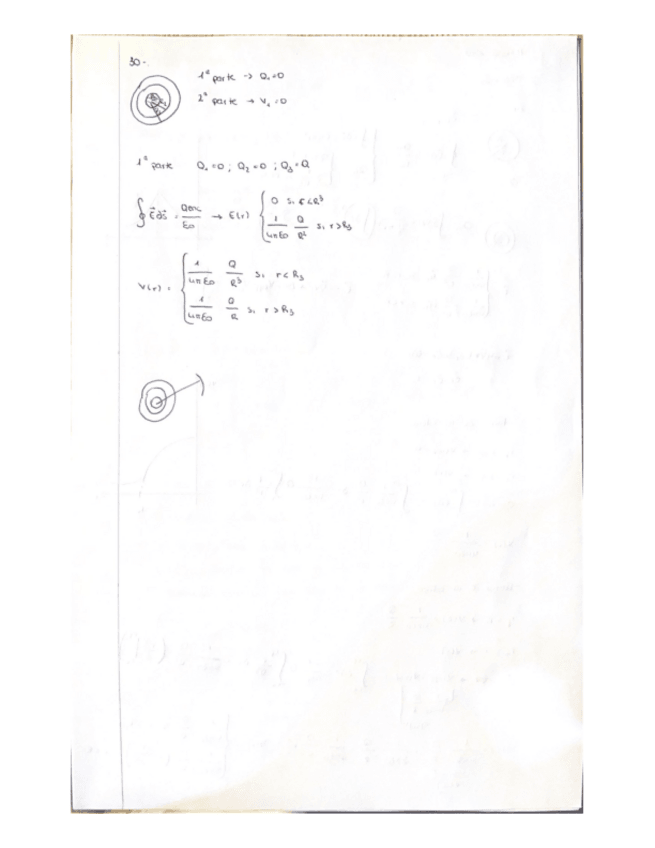 30-.
1ª parte -> Q₁=0
2ª parte → V₁=0
1ª parte Q₁=0 ; Q₂=0 ; Q₃=Q
∮ E⃗ dS⃗ = Qenc/ε0 → E(r) { 0 si r<R³
1/4πε0 Q/R² si r>R₃
V(r) = { 1/4πε0 Q/R³ si r<R₃
1/4πε0 Q/R si r>R₃